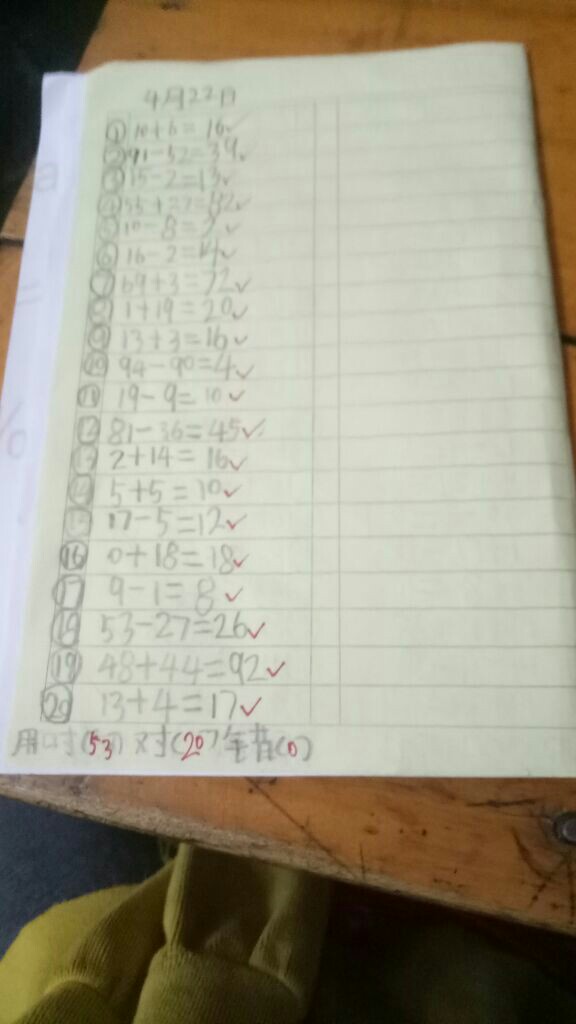 4月22日
① 10+6=16
② 91-52=39
③ 15-2=13
④ 55+27=82
⑤ 10-8=2
⑥ 16-2=14
⑦ 69+3=72
⑧ 1+19=20
⑨ 13+3=16
⑩ 94-90=4
⑪ 19-9=10
⑫ 81-36=45
⑬ 2+14=16
⑭ 5+5=10
⑮ 17-5=12
⑯ 0+18=18
⑰ 9-1=8
⑱ 53-27=26
⑲ 48+44=92
⑳ 13+4=17
用时(53) 对(20) 错(0)